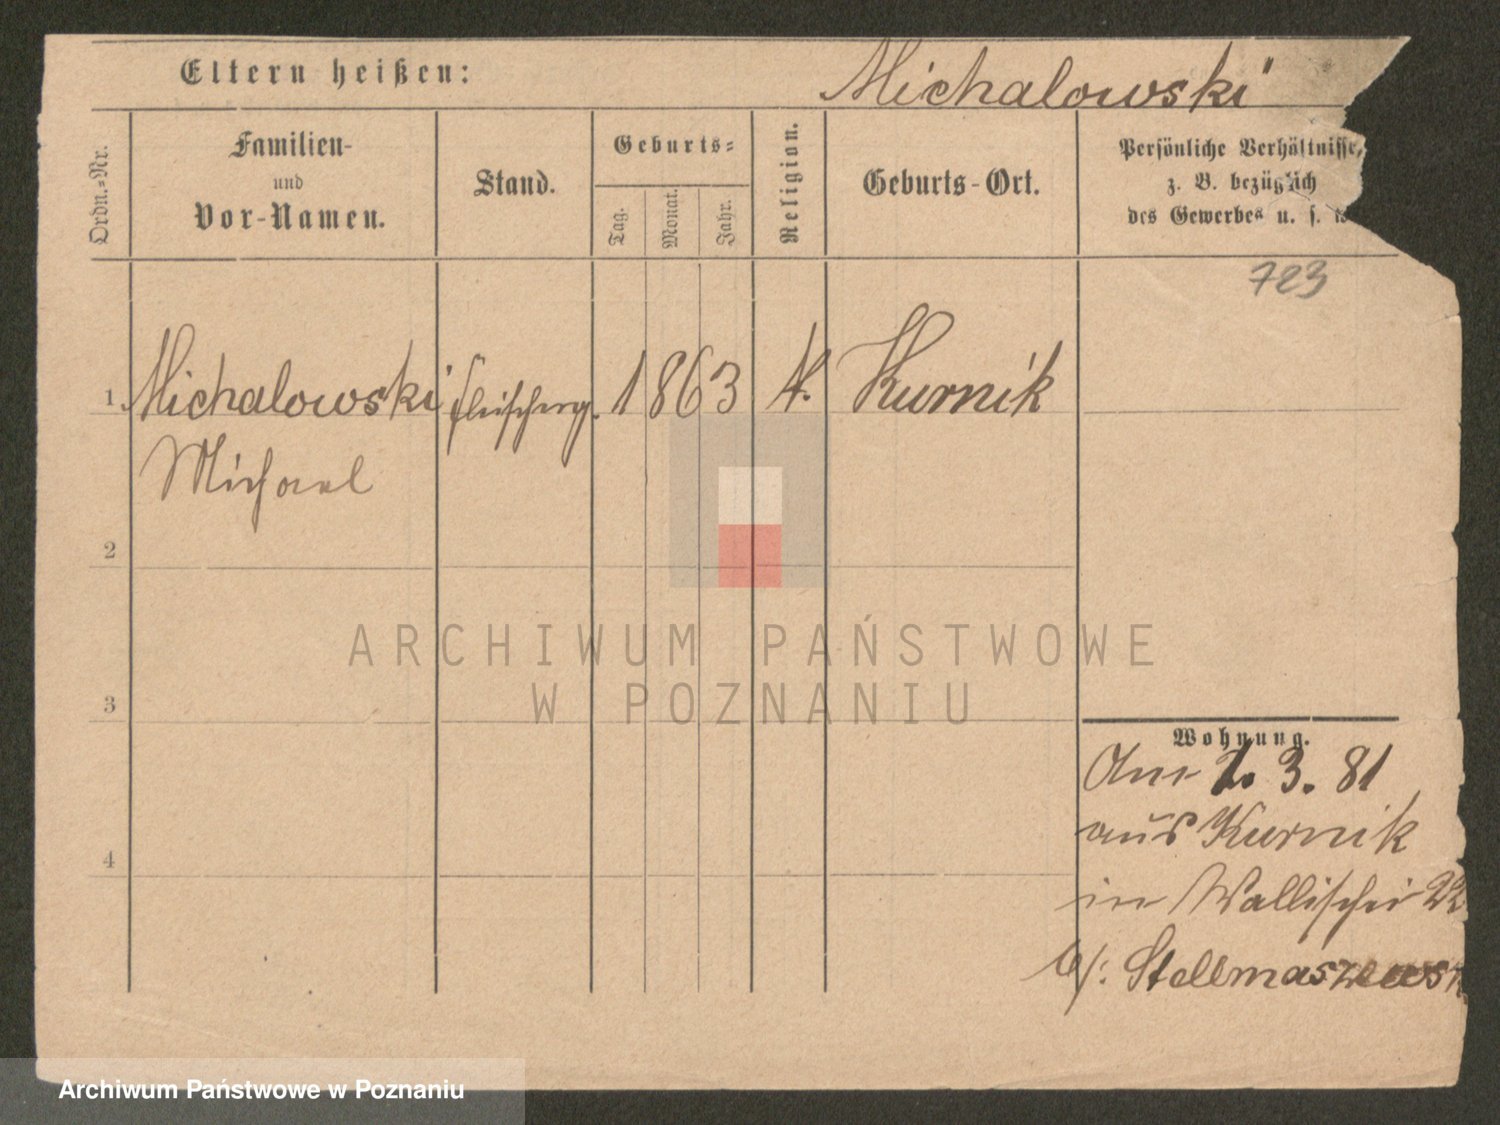 Eltern heißen:
Michalowski
Ordn.-Nr.
Familien-
und
Vor-Namen.
Stand.
Geburts-
Tag.
Monat.
Jahr.
Religion.
Geburts-Ort.
Persönliche Verhältnisse,
z. B. bezüglich
des Gewerbes u. s.
723
1 Michalowski fleischerg. 1863 K. Kurnik
Michael
2
3
4
Wohnung.
Am 1. 3. 81
aus Kurnik
in Wallischei
b/: Stellmaszewsk
ARCHIWUM PAŃSTWOWE
W POZNANIU
Archiwum Państwowe w Poznaniu